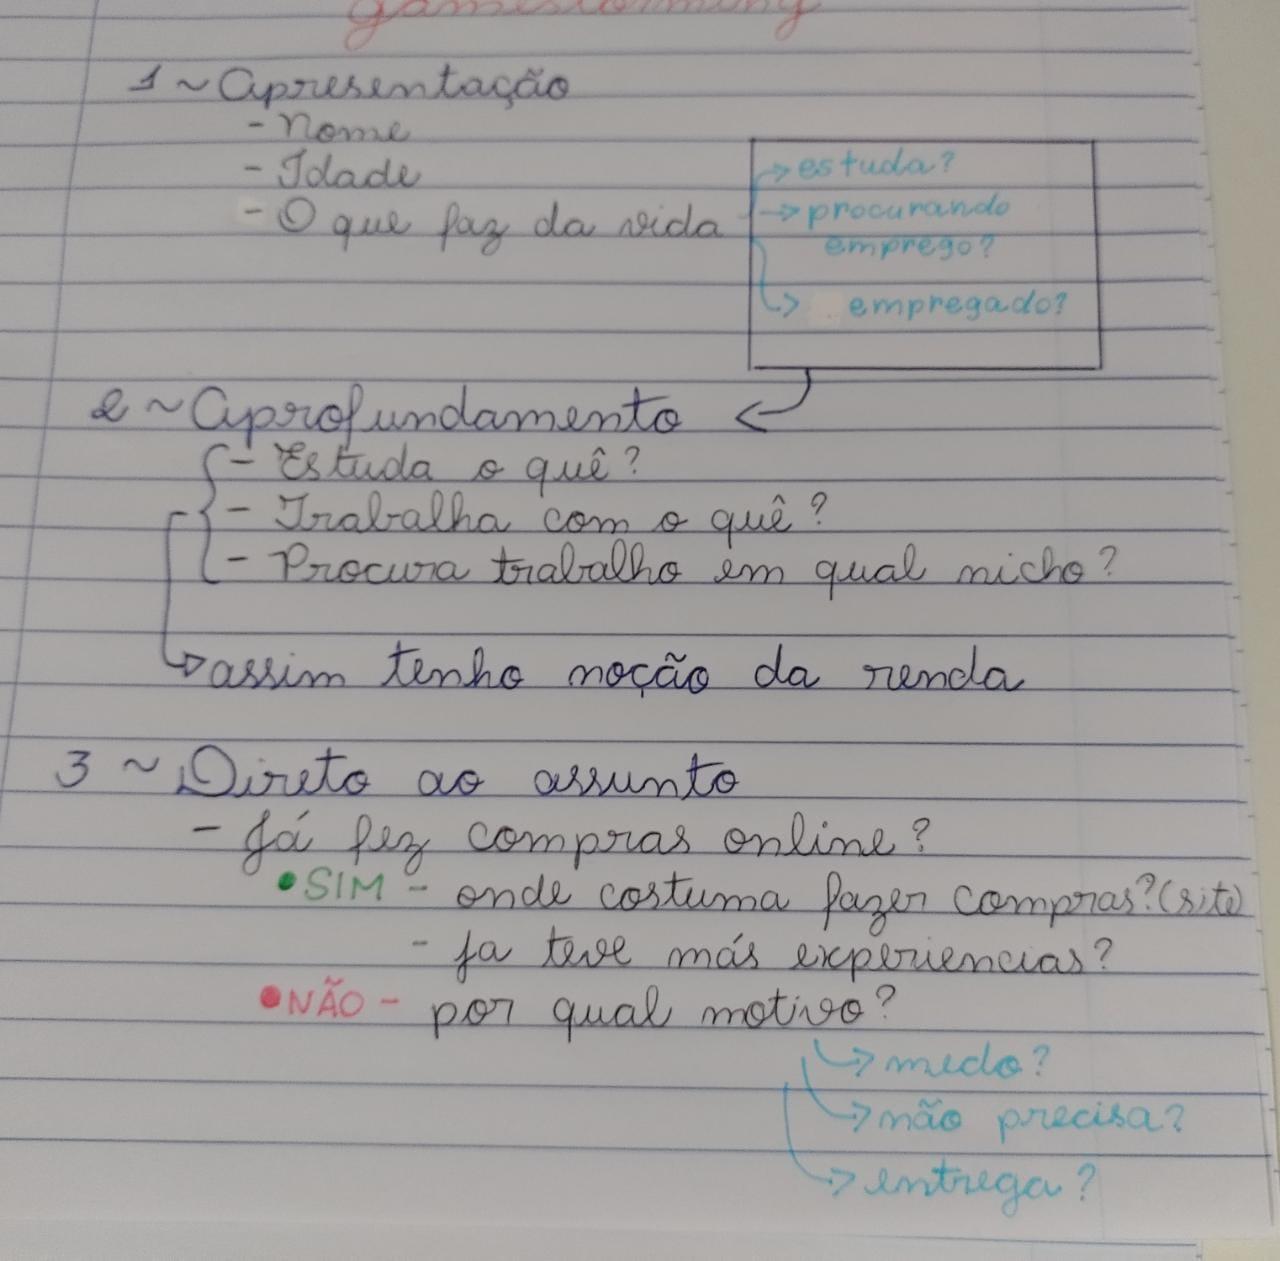 gamestorming
1 ~ Apresentação
- Nome
- Idade
- O que faz da vida
→ estuda?
→ procurando
emprego?
→ empregado?
2 ~ Aprofundamento
- Estuda o quê?
- Trabalha com o quê?
- Procura trabalho em qual nicho?
→ assim tenho noção da renda
3 ~ Direto ao assunto
- Já fez compras online?
• SIM - onde costuma fazer compras? (site)
- Ja teve más experiencias?
• NÃO - por qual motivo?
→ medo?
→ não precisa?
→ entrega?